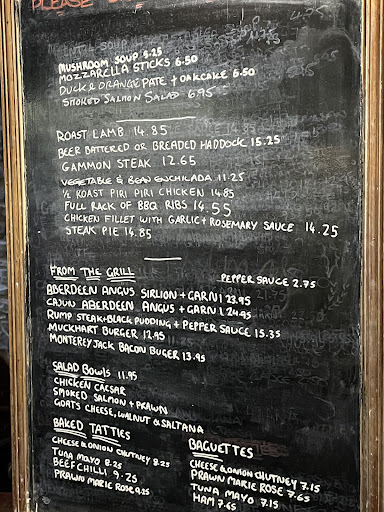 PLEASE
MUSHROOM SOUP 6.25
MOZZARELLA STICKS 6.50
DUCK & ORANGE PATE + OAKCAKE 6.50
SMOKED SALMON SALAD 6.95
ROAST LAMB 14.85
BEER BATTERED OR BREADED HADDOCK 15.25
GAMMON STEAK 12.65
VEGETABLE & BEAN ENCHILADA 11.25
½ ROAST PIRI PIRI CHICKEN 14.85
FULL RACK OF BBQ RIBS 14.55
CHICKEN FILLET WITH GARLIC + ROSEMARY SAUCE 14.25
STEAK PIE 14.85
FROM THE GRILL
PEPPER SAUCE 2.75
ABERDEEN ANGUS SIRLION + GARNI 23.95
CAJUN ABERDEEN ANGUS + GARNI 24.95
RUMP STEAK + BLACK PUDDING + PEPPER SAUCE 15.35
MUCKHART BURGER 12.95
MONTEREY JACK BACON BUGER 13.95
SALAD BOWLS 11.95
CHICKEN CAESAR
SMOKED SALMON + PRAWN
GOATS CHEESE, WALNUT & SALTANA
BAKED TATTIES
CHEESE & ONION CHUTNEY 8.25
TUNA MAYO 8.25
BEEF CHILLI 9.25
PRAWN MARIE ROSE 9.25
BAGUETTES
CHEESE & ONION CHUTNEY 7.15
PRAWN MARIE ROSE 7.65
TUNA MAYO 7.15
HAM 7.65